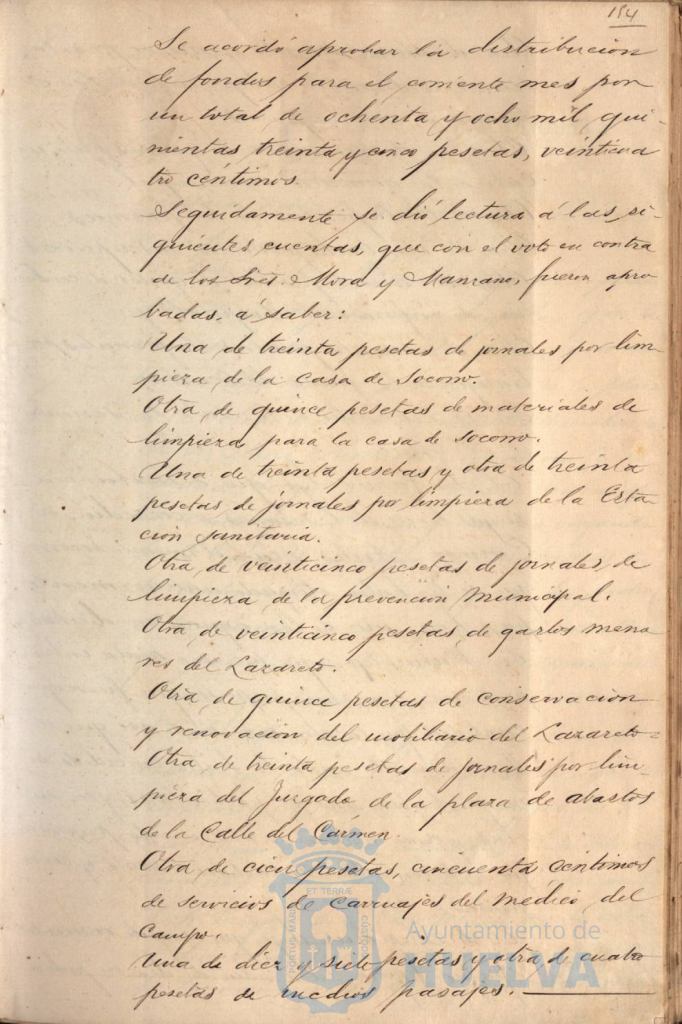 154
Se acordó aprobar la distribucion
de fondos para el corriente mes por
un total de ochenta y ocho mil, qui-
nientas treinta y cinco pesetas, veinticua
tro céntimos.
Seguidamente se dió lectura á las, si-
guientes cuentas, que con el voto en contra
de los Sres. Mora y Manzano, fueron apro
badas, á saber:
Una de treinta pesetas de jornales por lim-
pieza de la casa de socorro.
Otra de quince pesetas de materiales de
limpieza para la casa de socorro.
Una de treinta pesetas y otra de treinta
pesetas de jornales por limpieza de la Esta-
ción sanitaria.
Otra de veinticinco pesetas de jornales de
limpieza de la prevencion Municipal.
Otra de veinticinco pesetas de gastos meno
res del Lazareto.
Otra de quince pesetas de conservacion
y renovación del mobiliario del Lazareto=
Otra de treinta pesetas de jornales por lim-
pieza del Juzgado de la plaza de abastos
de la Calle del Cármen.
Otra de cien pesetas, cincuenta céntimos
de servicios de carruajes del medico del
Campo.
Una de diez y siete pesetas y otra de cuatro
pesetas de medios pasajes.
PORTUS MARIS ET TERRÆ CUSTODIA
Ayuntamiento de
HUELVA